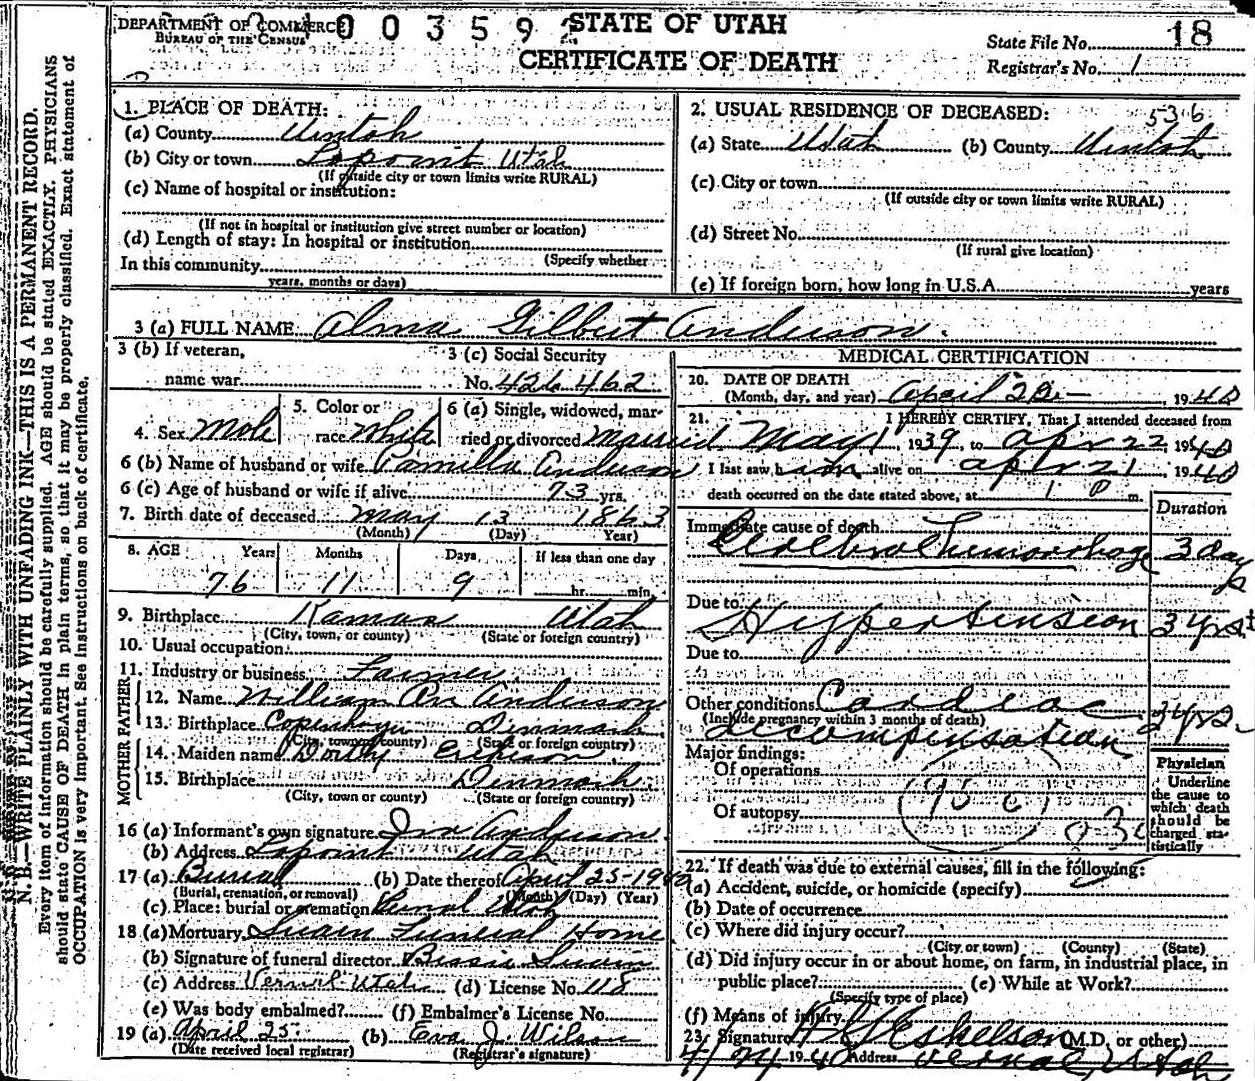 N. B.—WRITE PLAINLY WITH UNFADING INK—THIS IS A PERMANENT RECORD.
Every item of information should be carefully supplied. AGE should be stated EXACTLY. PHYSICIANS
should state CAUSE OF DEATH in plain terms, so that it may be properly classified. Exact statement of
OCCUPATION is very important. See instructions on back of certificate.
DEPARTMENT OF COMMERCE
BUREAU OF THE CENSUS
003592
STATE OF UTAH
CERTIFICATE OF DEATH
State File No. 18
Registrar's No. 1
1. PLACE OF DEATH:
(a) County Uintah
(b) City or town Lapoint Utah
(If outside city or town limits write RURAL)
(c) Name of hospital or institution:
(If not in hospital or institution give street number or location)
(d) Length of stay: In hospital or institution
(Specify whether
In this community
years, months or days)
2. USUAL RESIDENCE OF DECEASED:
536
(a) State Utah (b) County Uintah
(c) City or town
(If outside city or town limits write RURAL)
(d) Street No.
(If rural give location)
(e) If foreign born, how long in U.S.A. years
3 (a) FULL NAME Alma Gilbert Anderson.
3 (b) If veteran, name war
3 (c) Social Security No. 426 462
4. Sex Male 5. Color or race White 6 (a) Single, widowed, married or divorced Married
6 (b) Name of husband or wife Pamilla Anderson
6 (c) Age of husband or wife if alive 73 yrs.
7. Birth date of deceased May 13 1863
(Month) (Day) Year)
8. AGE Years Months Days If less than one day
76 11 9 hr. min.
9. Birthplace Kamas Utah
(City, town, or county) (State or foreign country)
10. Usual occupation
11. Industry or business Farmer
FATHER
12. Name William Anderson
13. Birthplace Copenhagn Dinmark
(City, town or county) (State or foreign country)
MOTHER
14. Maiden name Erickson
15. Birthplace Dinmark
(City, town or county) (State or foreign country)
16 (a) Informant's own signature Ira Anderson
(b) Address Lapoint Utah
17 (a) Burial (b) Date thereof April 25-1940
(Burial, cremation, or removal) (Month) (Day) (Year)
(c) Place: burial or cremation Vernal Utah
18 (a) Mortuary Swain Funeral Home
(b) Signature of funeral director Swain
(c) Address Vernal Utah (d) License No. 118
(e) Was body embalmed? (f) Embalmer's License No.
19 (a) April 25 (b) Eva J. Wilson
(Date received local registrar) (Registrar's signature)
MEDICAL CERTIFICATION
20. DATE OF DEATH
(Month, day, and year) April 22 — , 1940
21. I HEREBY CERTIFY, That I attended deceased from
May 1 1939 to apr 22 1940
I last saw him alive on apr 21 1940
death occurred on the date stated above, at 1 0 m.
Duration
Immediate cause of death
Cerebral Hemorrhage 3 days
Due to
Hypertension 3 yrs+
Due to
Other conditions Cardiac 3 yrs
(Include pregnancy within 3 months of death)
Decompensation
Major findings:
Of operations
Of autopsy
Physician
Underline the cause to which death should be charged statistically
22. If death was due to external causes, fill in the following:
(a) Accident, suicide, or homicide (specify)
(b) Date of occurrence
(c) Where did injury occur?
(City or town) (County) (State)
(d) Did injury occur in or about home, on farm, in industrial place, in
public place? (e) While at Work?
(Specify type of place)
(f) Means of injury
23. Signature Eskelson (M.D. or other)
4/24 1940 Address Vernal, Utah